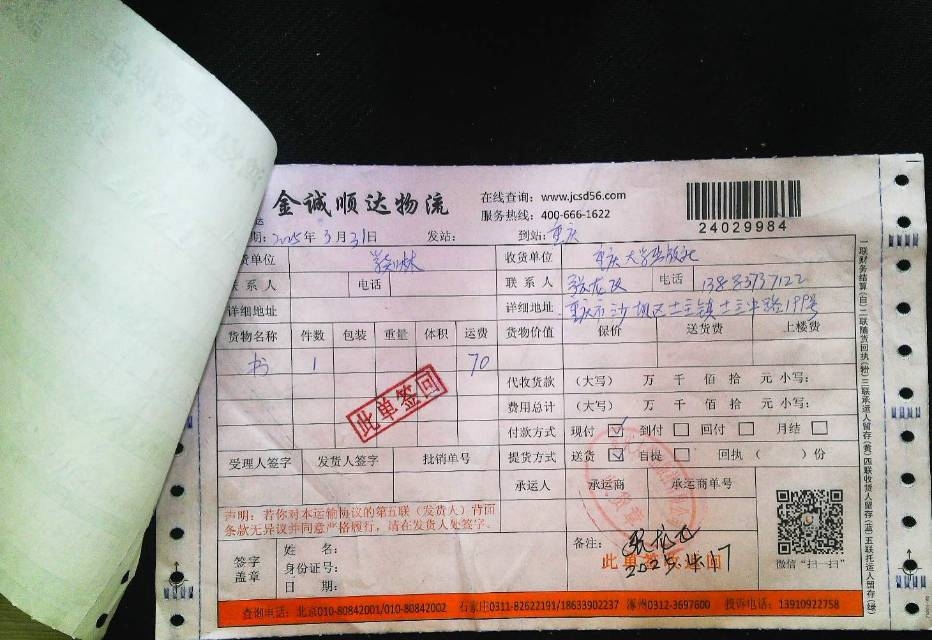 金诚顺达物流
在线查询：www.jcsd56.com
服务热线：400-666-1622
24029984
达
期：2025年3月31日 发站： 到站：重庆
货单位 收货单位 重庆大学出版社
联系人 电话 联系人 电话 13883737122
详细地址 详细地址 重庆市沙坪区土主镇土主中路199号
货物名称 件数 包装 重量 体积 运费 货物价值 保价 送货费 上楼费
书 1 70
代收货款 （大写） 万 千 佰 拾 元 小写：
此单签回
费用总计 （大写） 万 千 佰 拾 元 小写：
付款方式 现付 ☑ 到付 □ 回付 □ 月结 □
受理人签字 发货人签字 批销单号 提货方式 送货 ☑ 自提 □ 回执（ ）份
承运人 承运商 承运商单号
声明：若你对本运输协议的第五联（发货人）背面
条款无异议并同意严格履行，请在发货人处签字。
签字
盖章
姓 名：
身份证号：
日 期：
备注：
此单签
回
2025.4.17
微信“扫一扫”
查询电话：北京010-80842001/010-80842002 石家庄0311-82622191/18633902237 涿州0312-3697600 投诉电话：13910922758
一联财务结算（白）二联随货回执（粉）三联承运人留存（黄）四联收货人留存（蓝）五联托运人留存（绿）